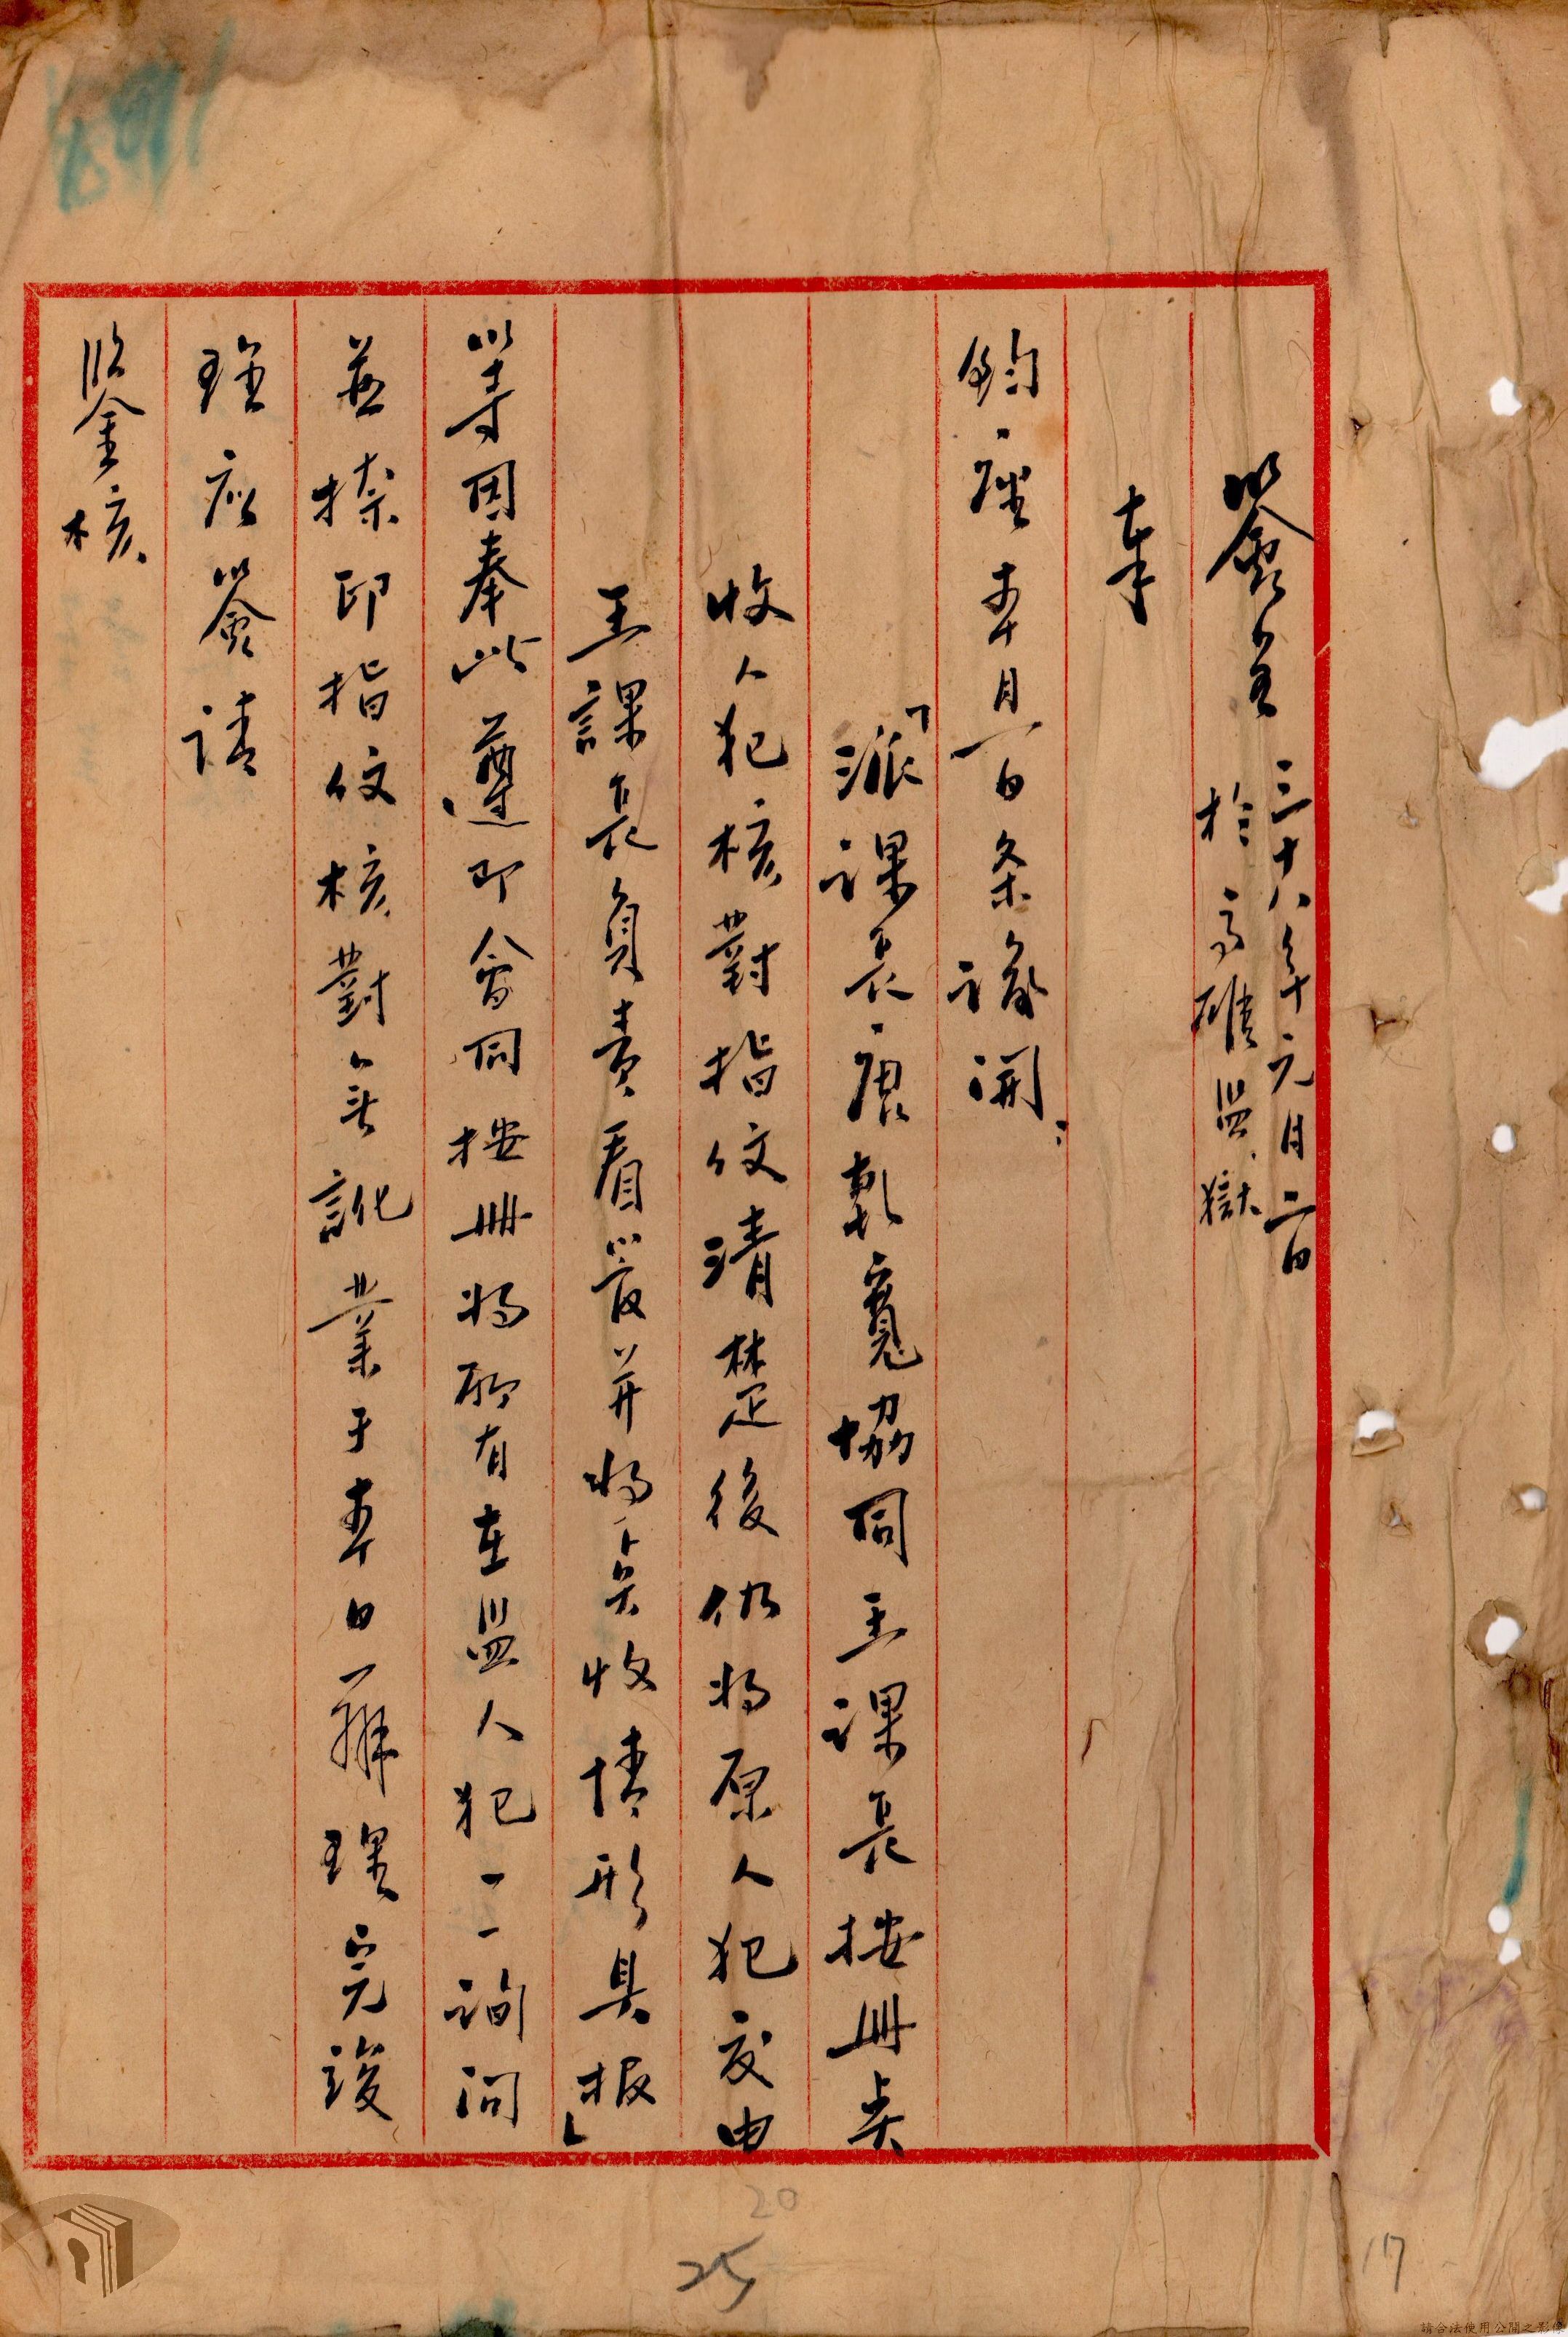 簽呈 三十八年十元月二日
於高雄監獄
奉
鈞座本月一日条諭開：
「派課長康乾寬協同王課長按冊点
收人犯核對指紋清楚後仍将原人犯交由
王課長負責看管并将点收情形具报」
等因奉此遵即會同按冊将所有在监人犯一一詢问
並捺印指紋核對無訛業于本日辦理完竣
理应簽請
鉴核
20
25
17
請合法使用公開之影像